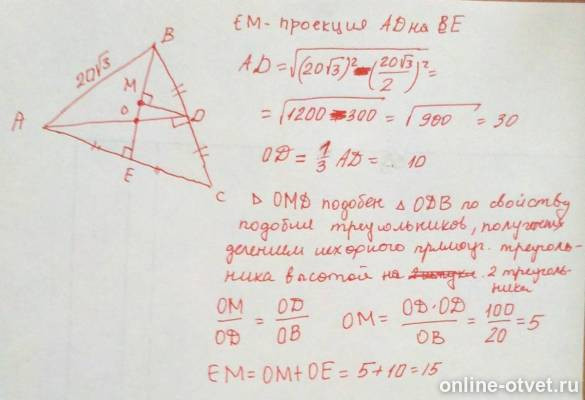 EM - проекция AD на BE
B
20√3
M
O
D
A
E
C
AD = √((20√3)² - (20√3/2)²) =
= √(1200 - 300) = √900 = 30
OD = 1/3 AD = 10
△ OMD подобен △ ODB по свойству
подобия треугольников, получ
делением исходного прямоуг. треуголь-
ника высотой на 2 треуголь-
ника
OM/OD = OD/OB OM = OD·OD/OB = 100/20 = 5
EM = OM + OE = 5 + 10 = 15
online-otvet.ru